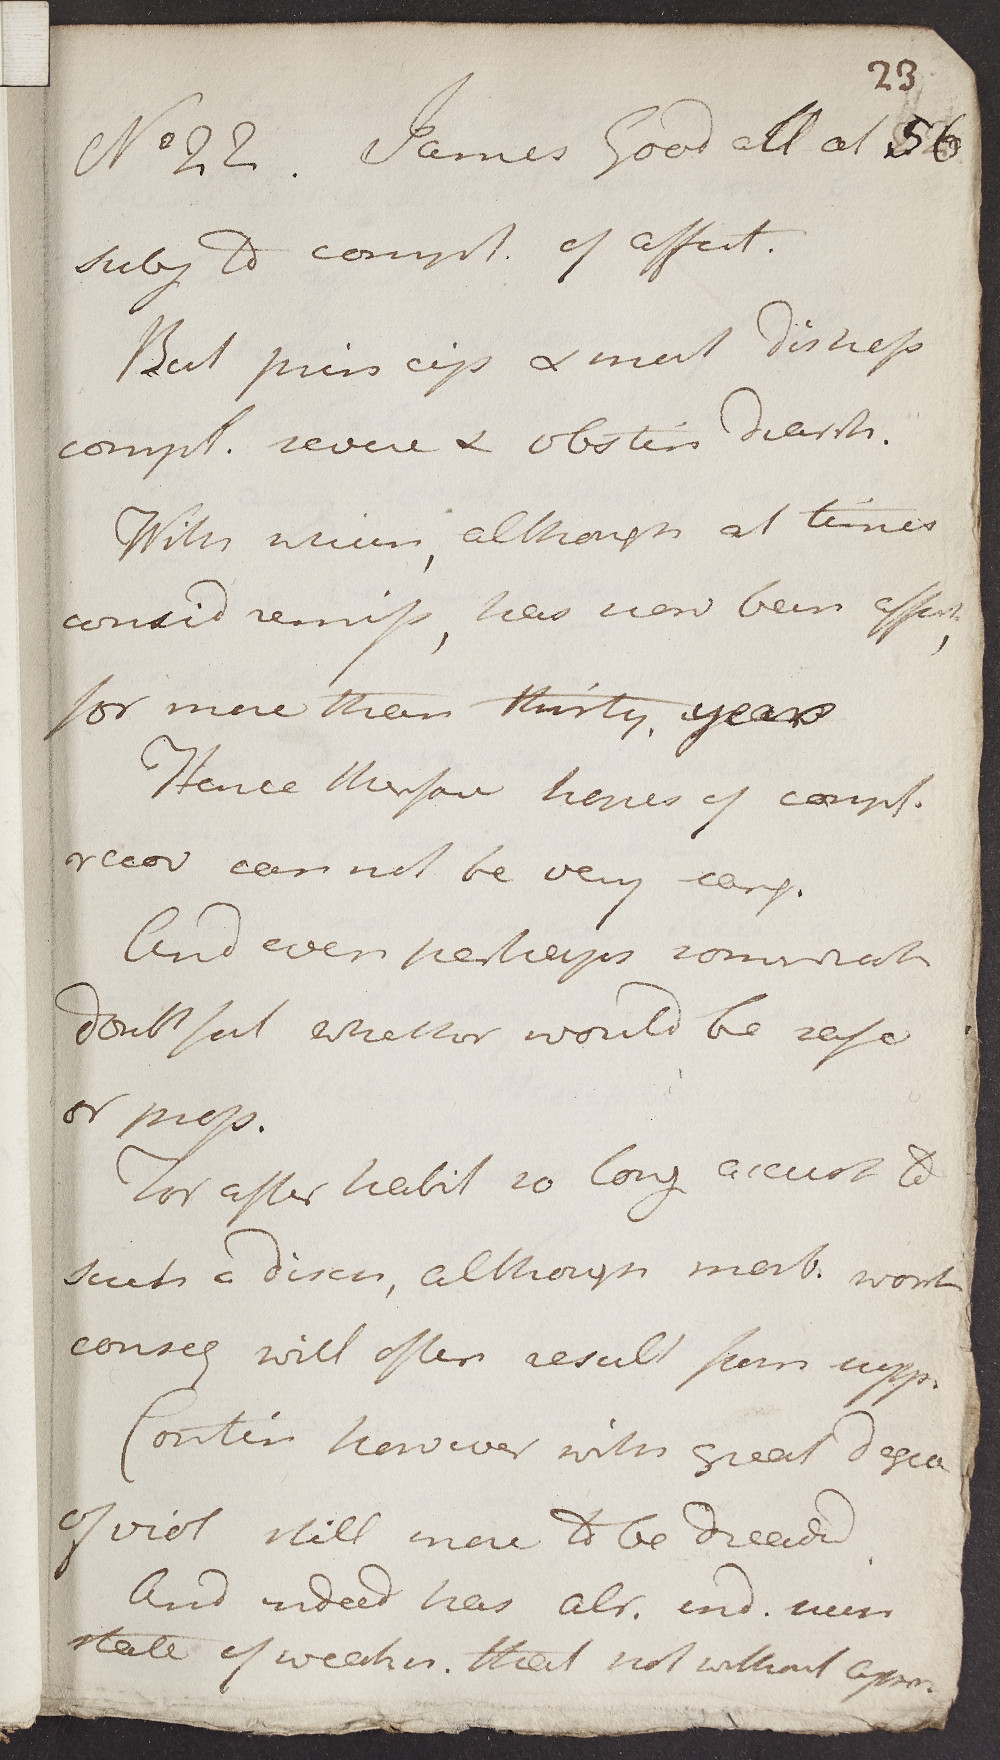 23
No 22. James Goodall aet 56
subj to compl. of affect.
But princip & most distress
compl. severe & obstin diarrh.
With which, although at times
consid remiss, has now been affect,
for more than thirty, years
Hence therfore hopes of compl.
recov cannot be very sang.
And even perhaps somewhat
doubtful whether would be safe
or prop.
For after habit so long accust to
such a disch, although mark. worst
conseq will often result from supp.
Contin however with great degree
of viol still more to be dreaded.
And indeed has alr. ind. such
state of weakn. that not without appr.